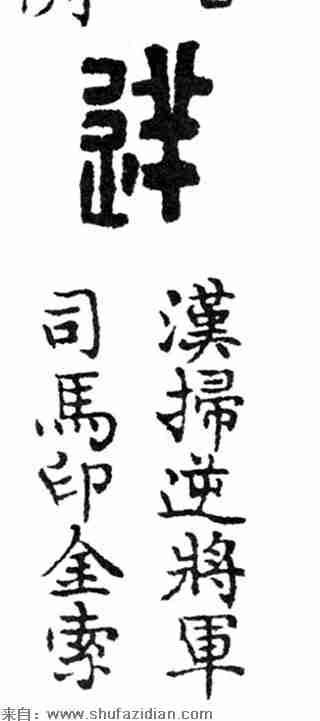 逆
漢掃逆將軍
司馬印金索
来自：www.shufazidian.com